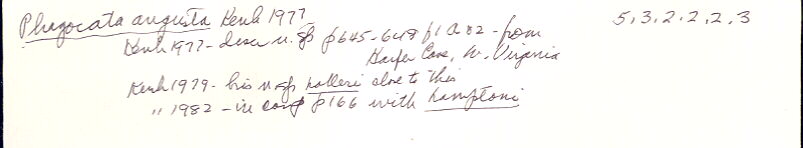 Phagocata angusta Kenk 1977 5, 3, 2, 2, 2, 3
Kenk 1977 - descr n. sp p645-649 f1 a.o2 - from
Harper Cave, W. Virginia
Kenk 1979 - his n sp holleri close to this
" 1982 - in comp p166 with hamptoni